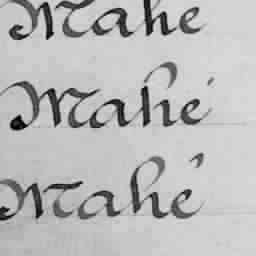 Mahé
Mahé
Mahé